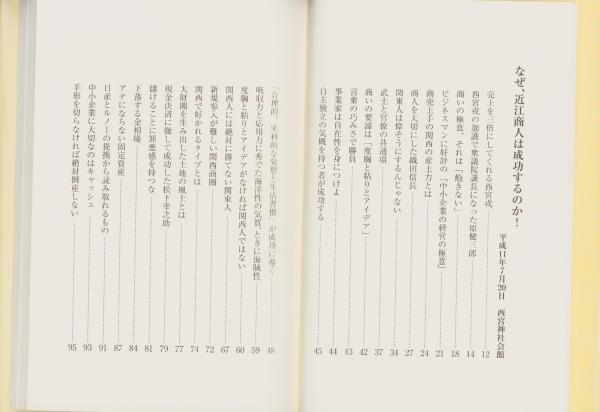 なぜ、近江商人は成功するのか！
平成11年7月20日　西宮神社会館
売上を三倍にしてくれる西宮戎 12
西宮戎の加護で衆議院議長になった原健三郎 14
商いの極意、それは「飽きない」 18
ビジネスマンに好評の「中小企業の経営の極意」 21
商売上手の関西の産土力とは 24
商人を大切にした織田信長 27
関東人は偉そうにするんじゃない 34
武士と官僚の共通項 37
商いの要諦は「度胸と粘りとアイデア」 42
言葉の巧みさで勝負 43
事業家は自在性を身につけよ 44
自主独立の気概を持つ者が成功する 45
「合理的、実利的な発想と生活習慣」が成功に導く 48
吸収力と応用力に秀でた海洋性の気質、ときに海賊性 59
度胸と粘りとアイデアがなければ関西人ではない 60
関西人には絶対に勝てない関東人 67
新規参入が難しい関西商圏 72
関西で好かれるタイプとは 74
大財閥を生み出した土地の風土とは 77
現金決済に徹して成功した松下幸之助 79
儲けることに罪悪感を持つな 81
下落する金相場 84
アテにならない固定資産 87
日産とルノーの提携から読み取れるもの 91
中小企業に大切なのはキャッシュ 93
手形を切らなければ絶対倒産しない 95